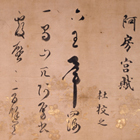 阿房宮賦
杜牧之
六王畢四海
一蜀山兀阿房出